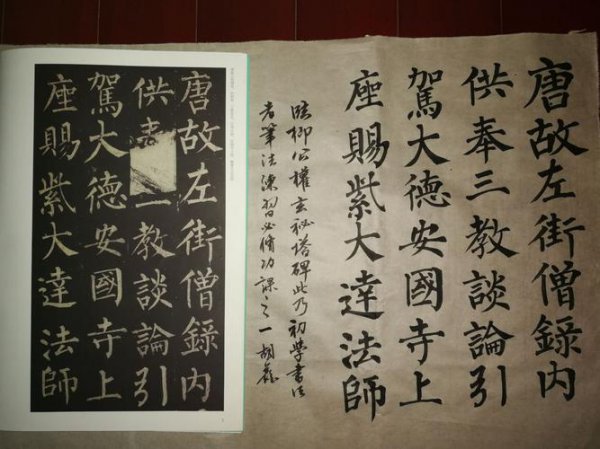 唐故左街僧錄内
供奉三教談論引
駕大德安國寺上
座賜紫大達法師
臨柳公權玄秘塔碑此乃初學書法
者筆法練習必修功課之一胡
唐故左街僧錄内
供奉三教談論引
駕大德安國寺上
座賜紫大達法師